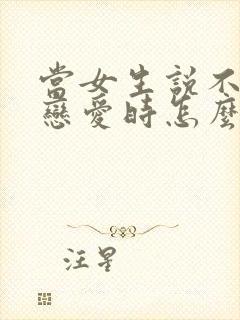 當女生說不
戀愛時怎麼
汪星